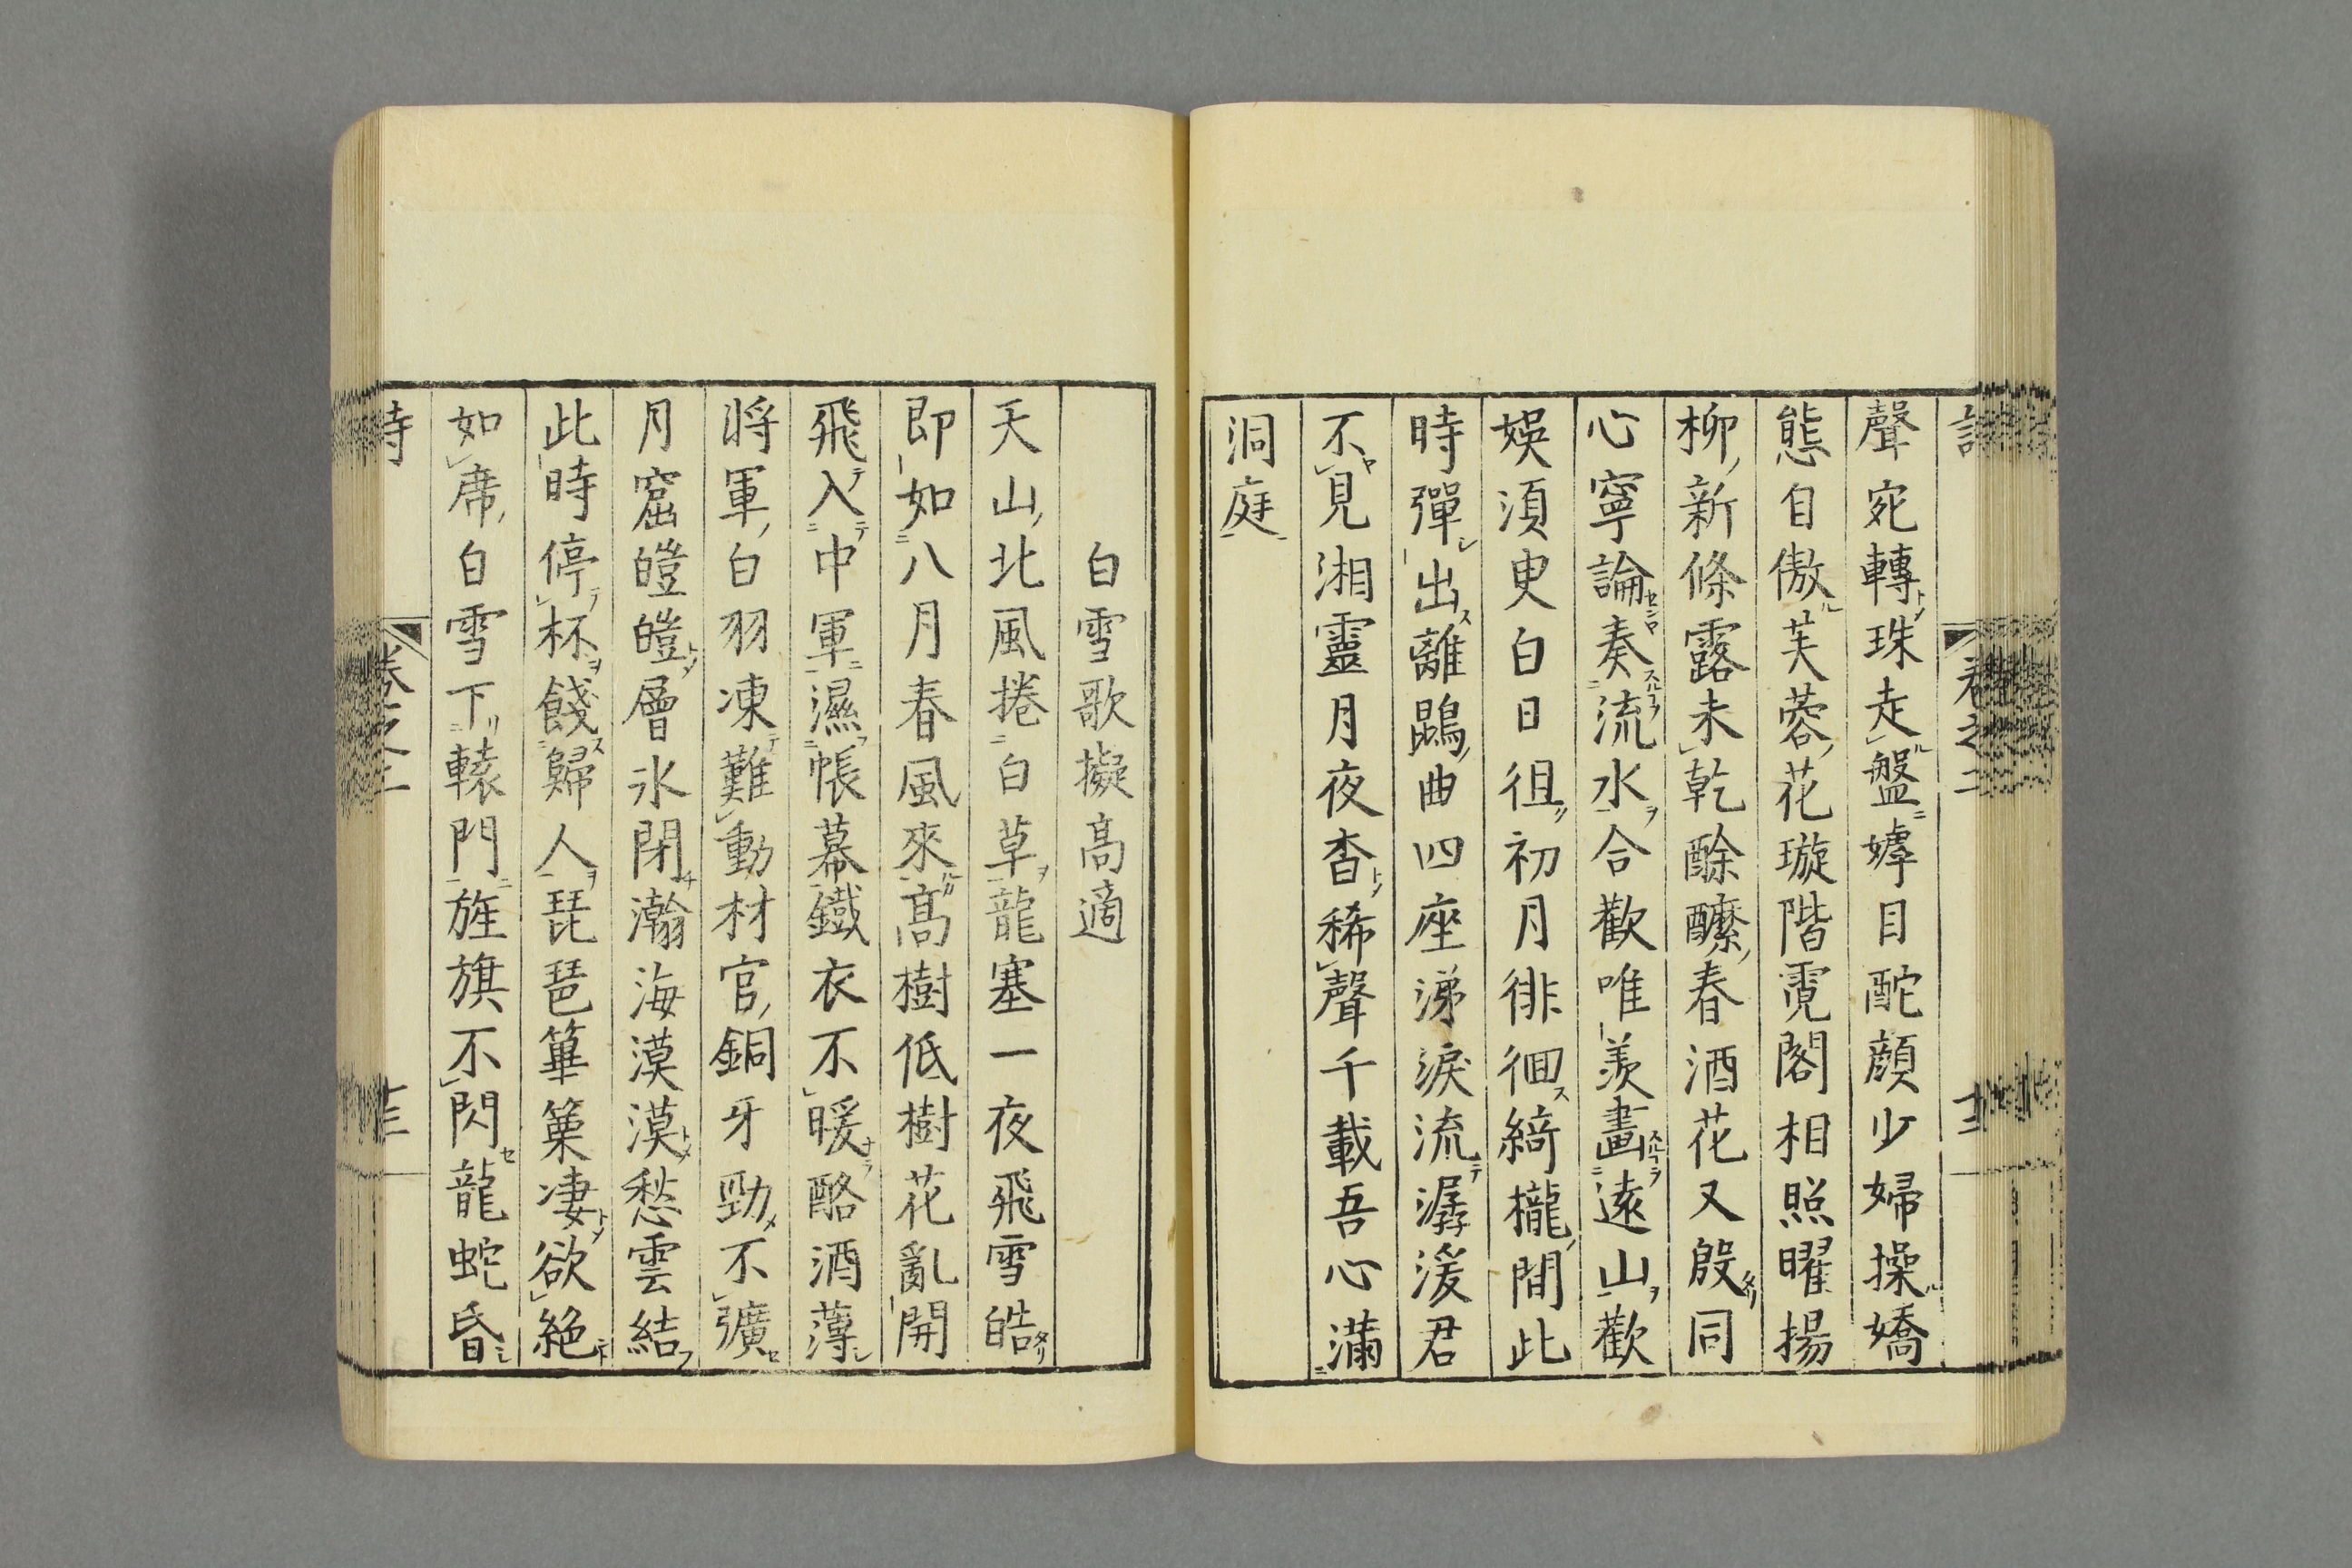 聲宛轉珠走盤嫭目酡顔少婦操嬌
態自傲芙蓉花璇階霓閣相照曜揚
柳新條露未乾酴醾春酒花又殷同
心寧論奏流水合歡唯羨畫遠山歡
娛須臾白日徂初月徘徊綺櫳間此
時彈出離鵾曲四座涕淚流潺湲君
不見湘靈月夜杳稀聲千載吾心滿
洞庭
白雪歌擬高適
天山北風捲白草龍塞一夜飛雪皓
即如八月春風來高樹低樹花亂開
飛入中軍濕帳幕鐵衣不暖酪酒薄
將軍白羽凍難動材官銅牙勁不彍
月窟皚皚層氷閉瀚海漠漠愁雲結
此時停杯餞歸人琵琶篳篥凄欲絕
如席白雪下轅門旌旗不閃龍蛇昏
詩 卷之二 十三